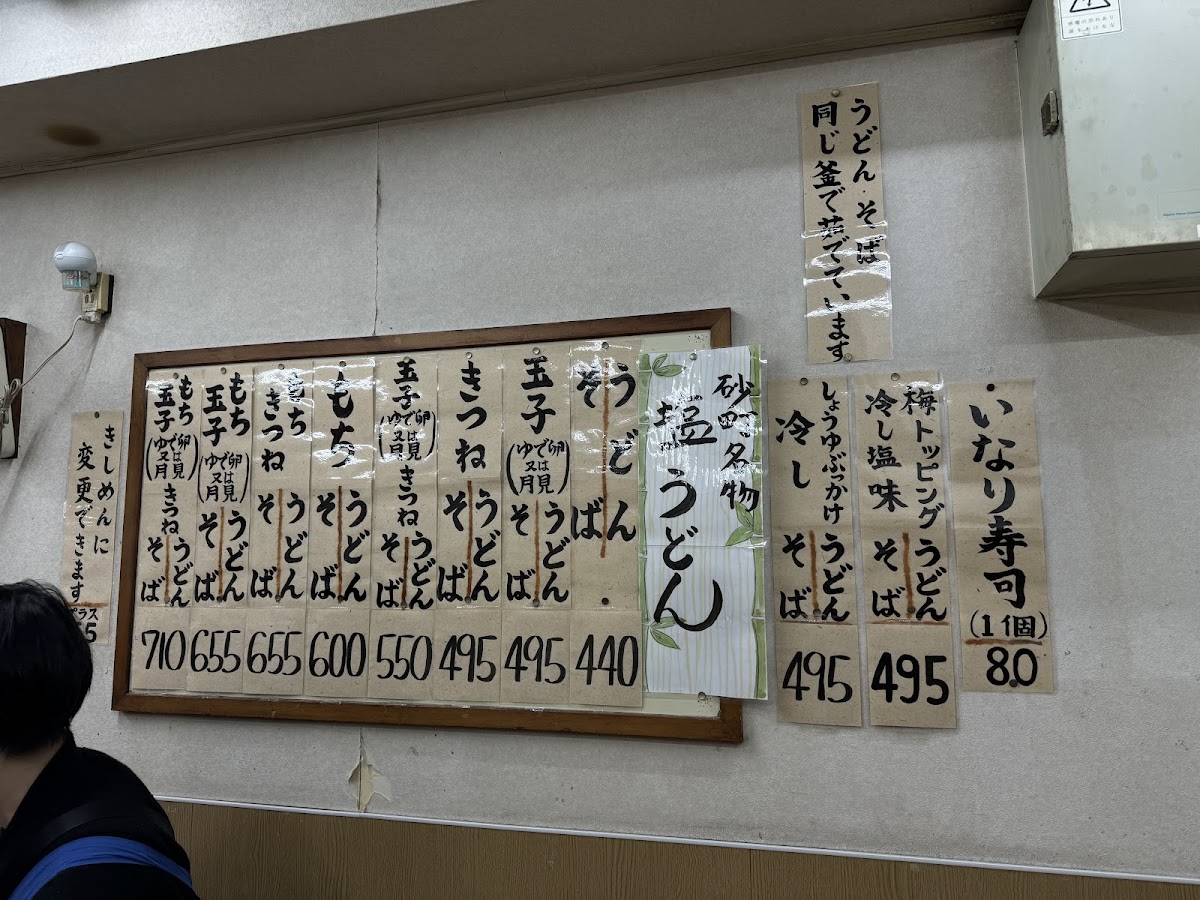 感電の恐れあり
うどん・そば
同じ釜で茹でています
いなり寿司
(1個)
80
梅トッピング
冷し塩味
うどん
そば
495
しょうゆぶっかけ
冷し
うどん
そば
495
砂町名物
塩うどん
うどん
そば
440
玉子
(ゆで卵
又は月見)
うどん
そば
495
きつね
うどん
そば
495
玉子
(ゆで卵
又は月見)
きつね
うどん
そば
550
もち
うどん
そば
600
もち
きつね
うどん
そば
655
もち
玉子
(ゆで卵
又は月見)
うどん
そば
655
もち
玉子
(ゆで卵
又は月見)
きつね
うどん
そば
710
きしめんに
変更できます
プラス
5